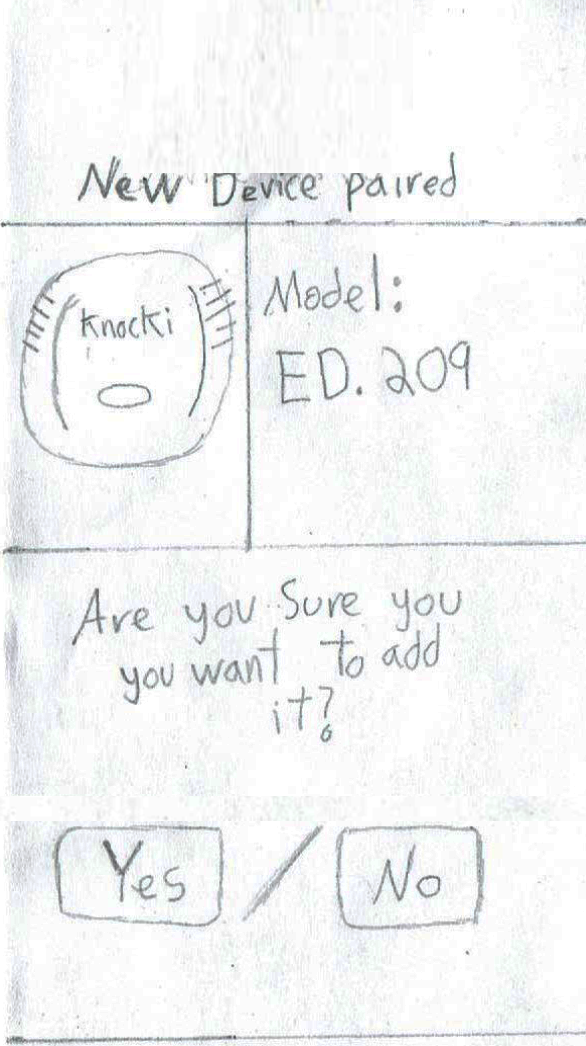 New Device paired
Knocki
Model:
ED. 209
Are you Sure you
you want to add
it?
Yes / No